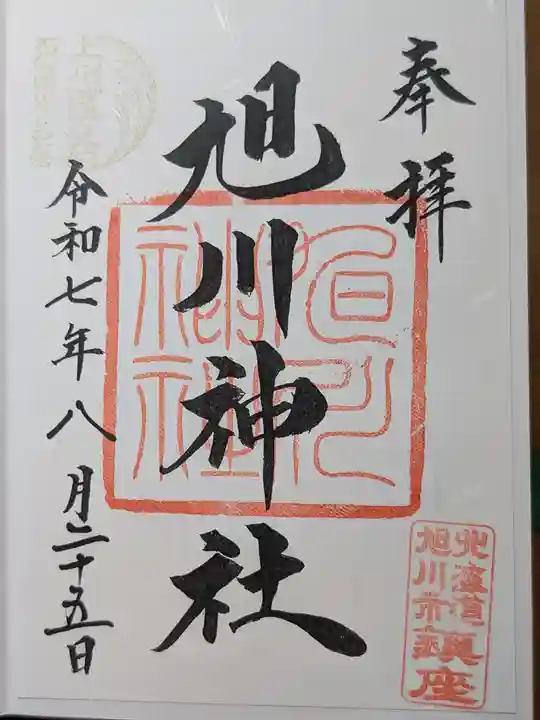 奉拝
旭川神社
令和七年八月二十五日
旭川神社
北海道
旭川市
鎮座